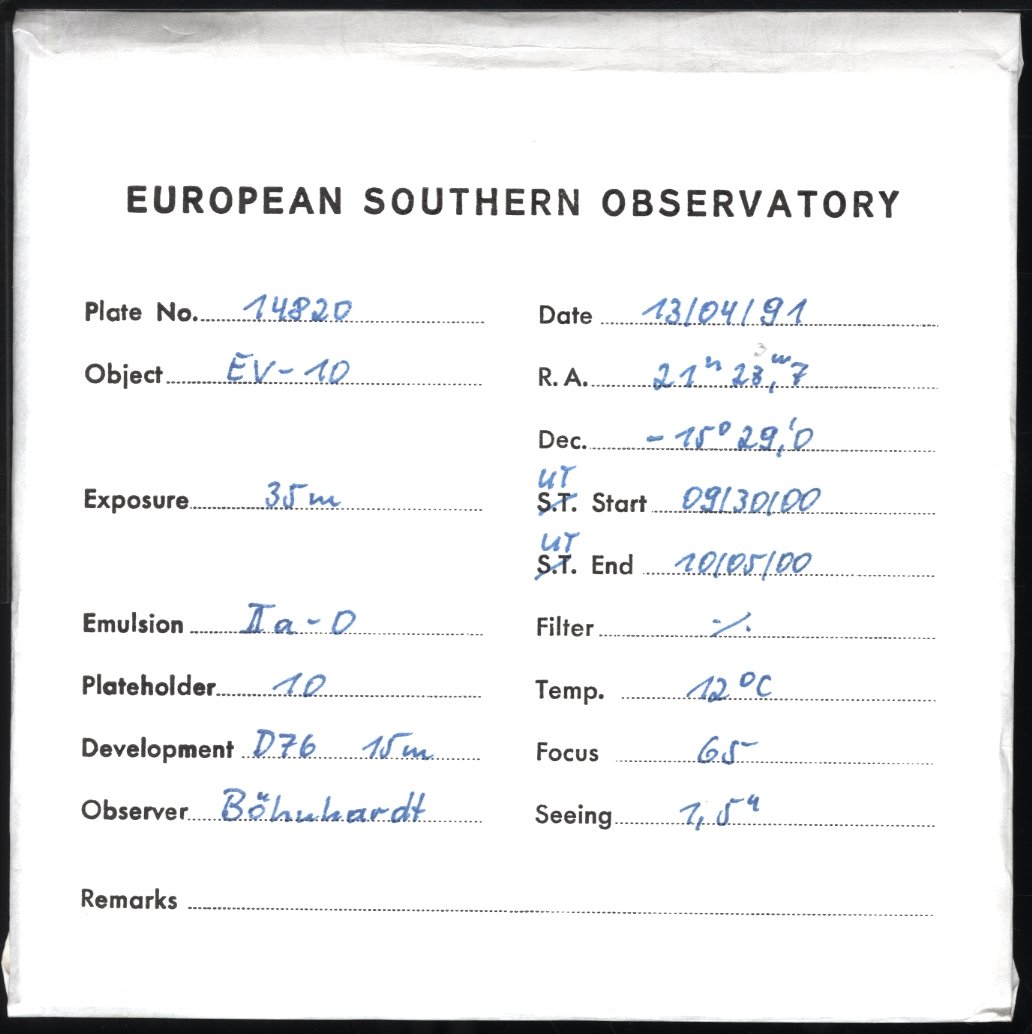 EUROPEAN SOUTHERN OBSERVATORY
Plate No. 14820
Date 13/04/91
Object EV-10
R.A. 21h 23,m7
3
Dec. -15° 29,'0
Exposure 35m
UT
S.T. Start 09/30/00
UT
S.T. End 10/05/00
Emulsion IIa-O
Filter -/.
Plateholder 10
Temp. 12°C
Development D76 15m
Focus 65
Observer Böhnhardt
Seeing 1,5"
Remarks